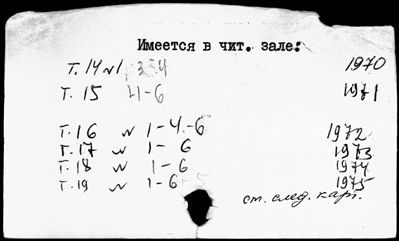 Имеется в чит. зале:
Т. 14 №1 3 4 1970
Т. 15 4-6 1971
Т. 16 № 1-4-6 1972
Т. 17 № 1-6 1973
Т. 18 № 1-6 1974
Т. 19 № 1-6 1975
см. след. карт.